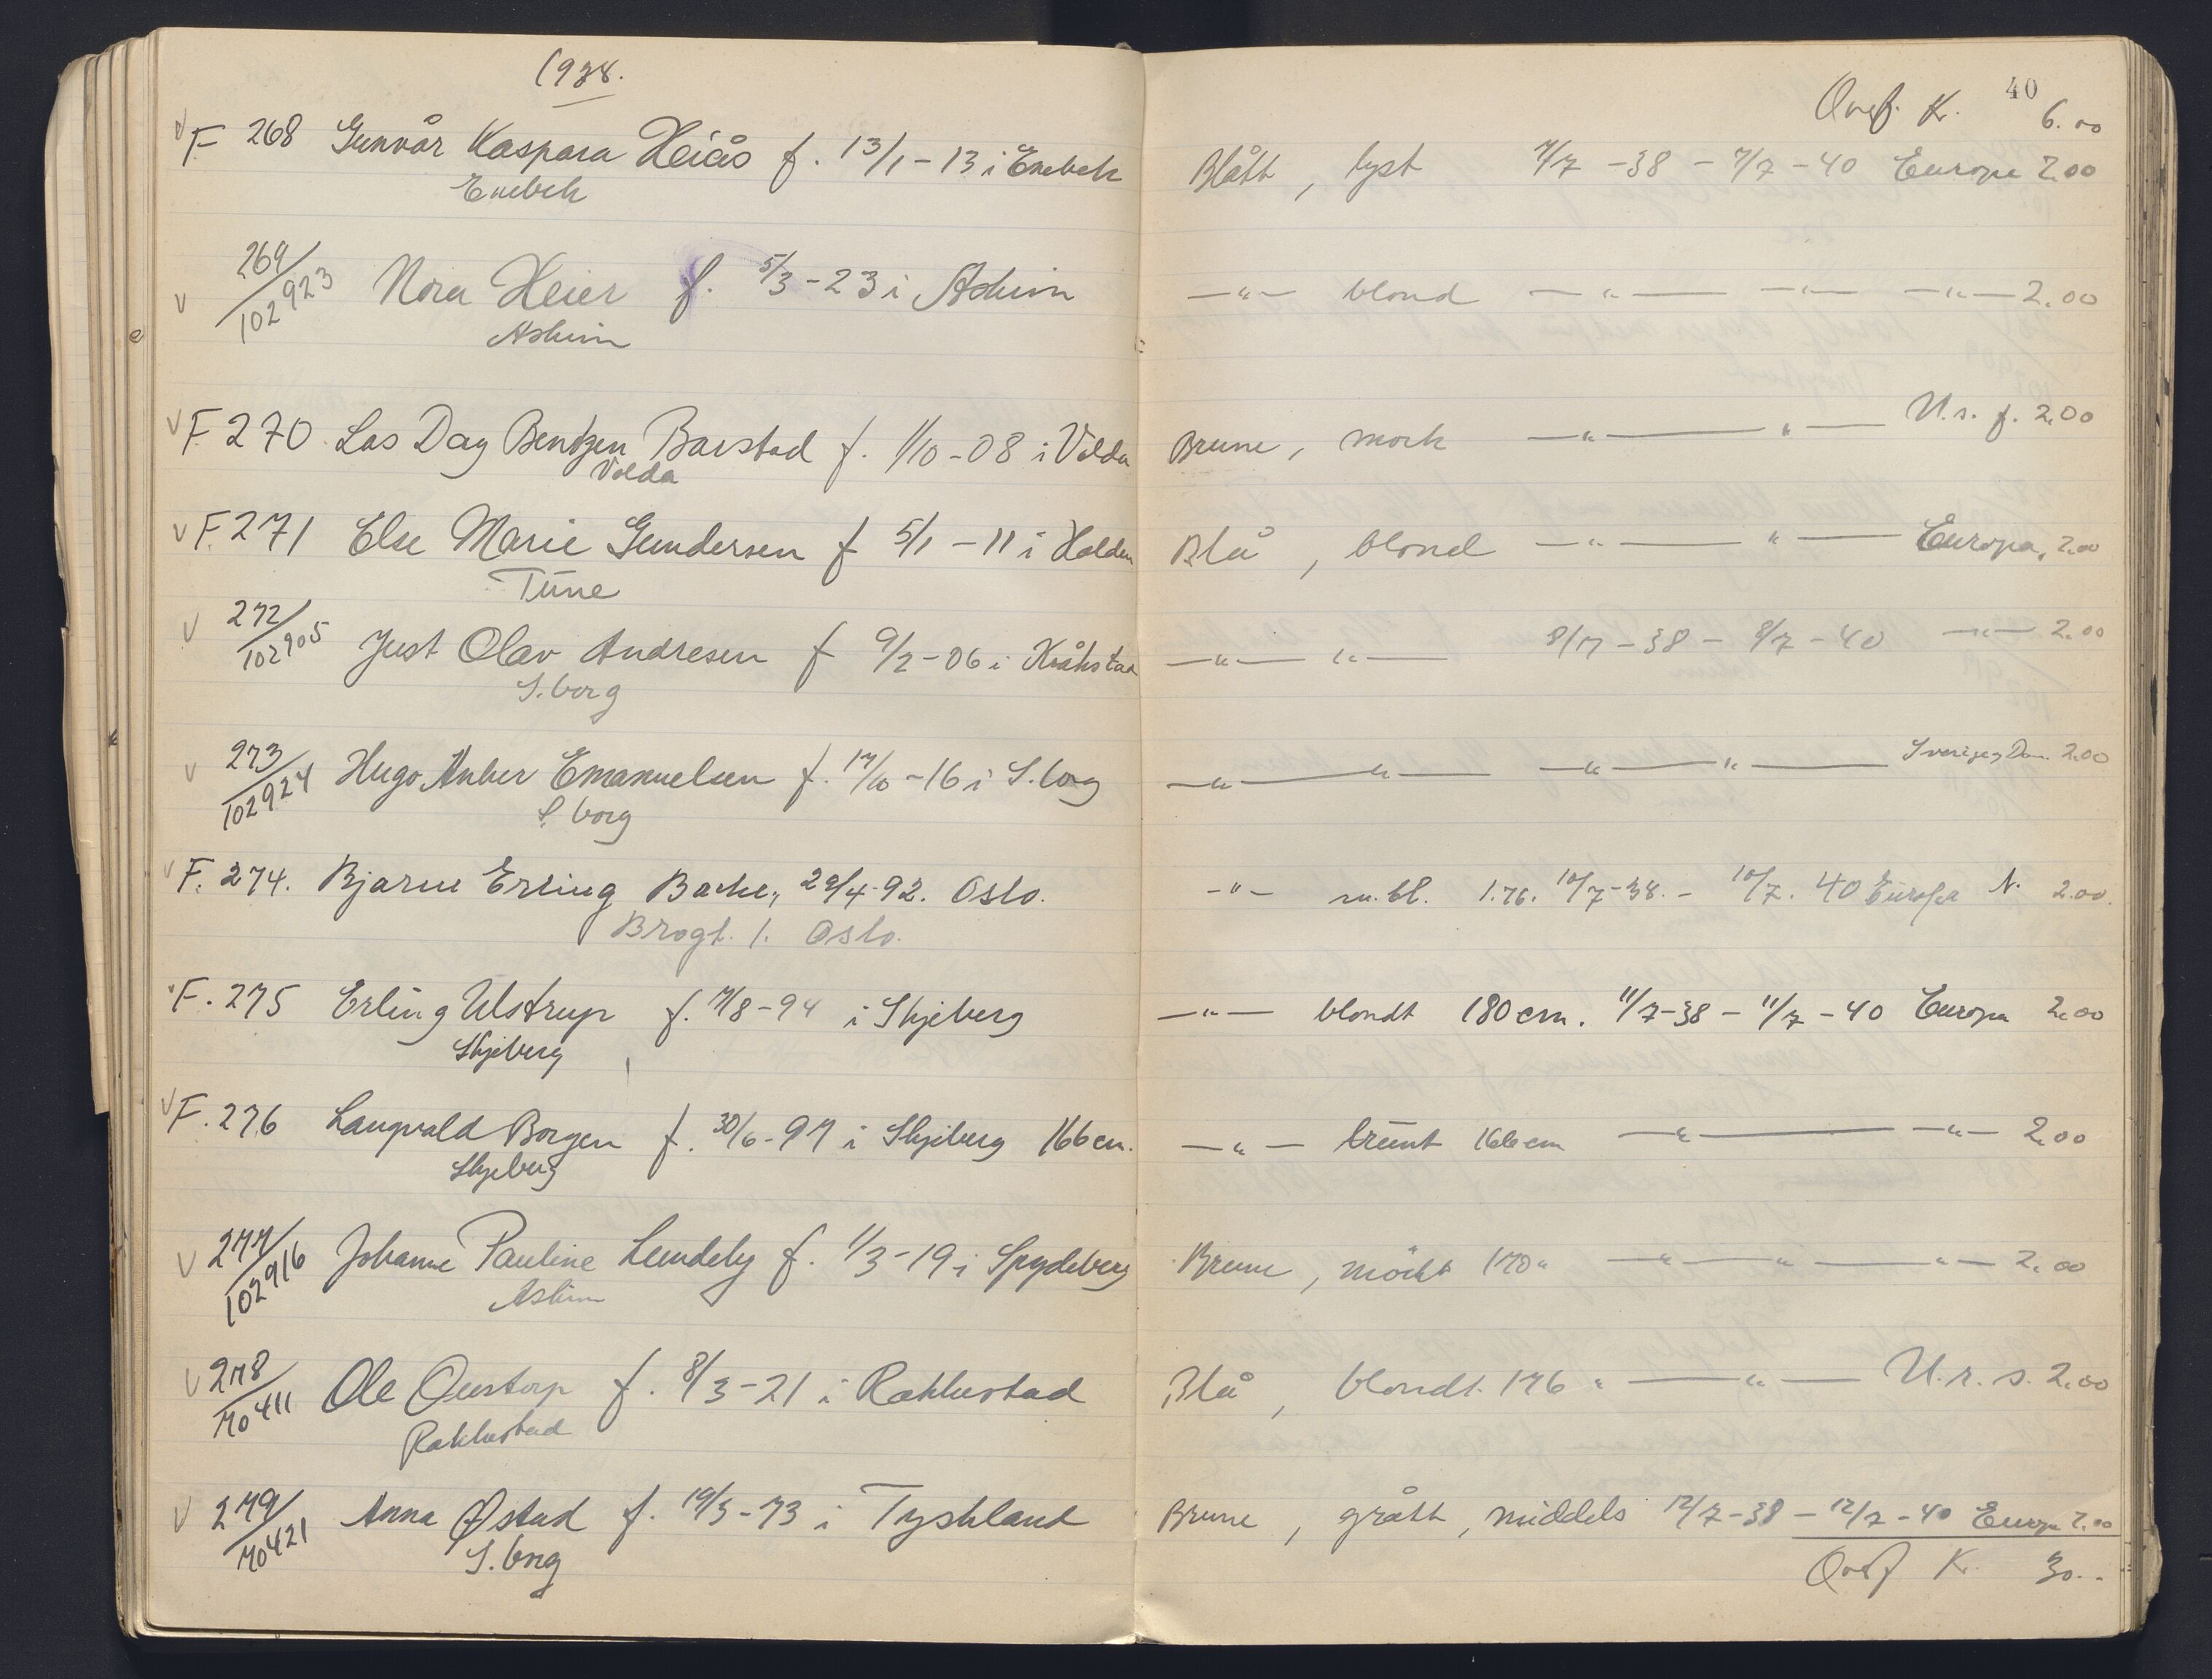 1938.
40
Overf. Kr. 6.00
F 268 Gunvår Kaspara Heiås f. 13/1-13 i Enebak Blått, lyst 7/7-38 - 7/7-40 Europa 2.00
Enebak
269/102923 Nora Heier f. 5/3-23 i Askim —"— blond —"— —"— —"— 2.00
Askim
F. 270 Las Dag Bentzen Barstad f. 1/10-08 i Volda Brune, mork —"— " — U.s.f. 2.00
Volda
F. 271 Else Marie Gundersen f 5/1-11 i Halden Blå, blond —"— " — Europa, 2.00
Tune
272/102905 Just Olav Andresen f 9/2-06 i Kråkstad —"— "— 8/7-38 - 8/7-40 —"— 2.00
S.borg
273/102924 Hugo Anker Emanuelsen f. 17/10-16 i S.borg —"— "— —"— "— Sverige, Dan. 2.00
S.borg
F. 274. Bjarne Erling Bache, 29/4-92. Oslo. -"- m.bl. 1.76. 10/7-38. - 10/7. 40 Europa N. 2.00.
Brogt. 1. Oslo.
F. 275 Erling Ulstrup f. 7/8-94 i Skjeberg —"— blondt 180 cm. 11/7-38 - 11/7-40 Europa 2.00
Skjeberg
F. 276 Langvald Borgen f. 30/6-97 i Skjeberg 166 cm. —"— brunt 166 cm —"— —"— 2.00
Skjeberg
277/102916 Johanne Pauline Lundeby f. 1/3-19 i Spydeberg Brune, mörkt 170 " —"— " — "— 2.00
Askim
278/70411 Ole Oustorp f. 8/3-21 i Rakkestad Blå, blondt. 176 " — "— U.r.s. 2.00
Rakkestad
279/70421 Anna Østad f. 19/3-73 i Tyskland Brune, grått, middels 12/7-38 - 12/7-40 Europa 2.00
S.borg
Overf Kr. 30.-